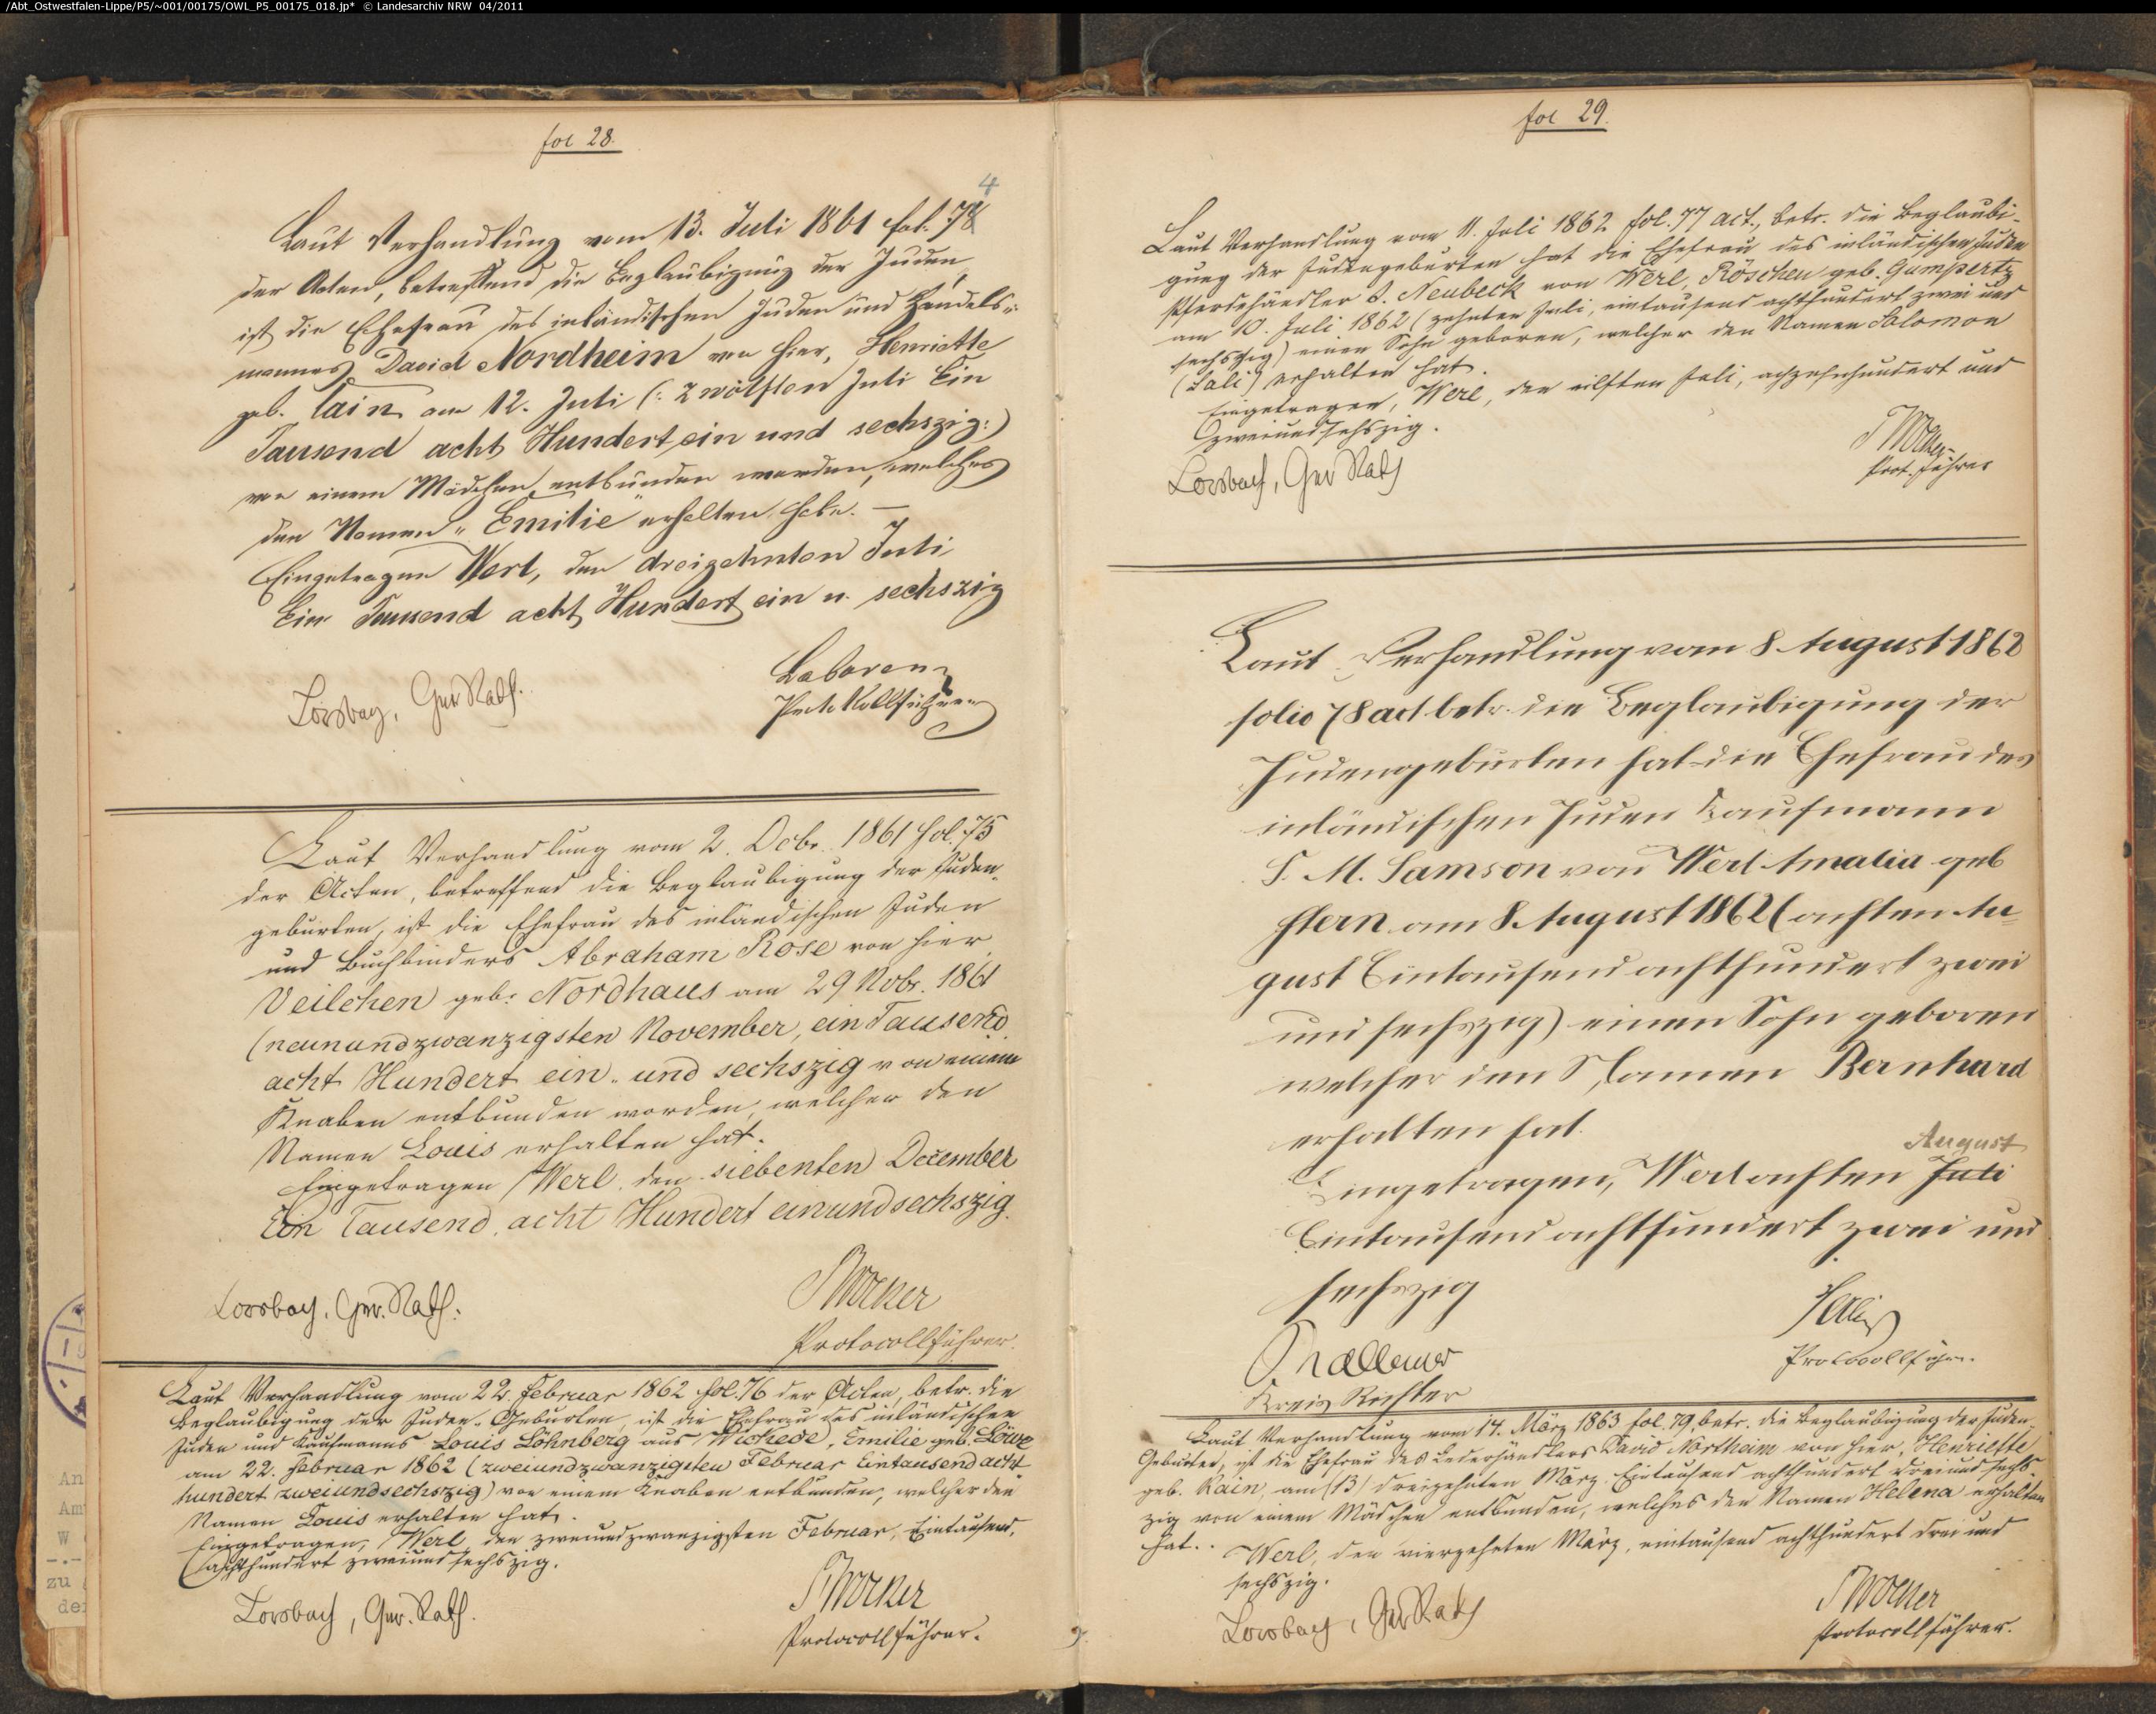 /Abt_Ostwestfalen-Lippe/P5/~001/00175/OWL_P5_00175_018.jp* © Landesarchiv NRW 04/2011
fol 28.
4
Laut Verhandlung vom 13. Juli 1861 fol. 78
der Acten, betreffend die Beglaubigung der Juden,
ist die Ehefrau des inländischen Juden und Handels-
mannes David Nordheim von hier, Henriette
geb. am 12. Juli (: zwölften Juli Ein
Tausend acht Hundert ein und sechszig:)
von einem Mädchen entbunden worden, welches
den Namen „Emilie" erhalten habe. —
Eingetragen Werl, den dreizehnten Juli
Ein Tausend acht Hundert ein u. sechszig
Lorsbach, Ger Rath.
Protokollführer
Laut Verhandlung vom 2. Dcbr. 1861 fol. 75
der Acten, betreffend die Beglaubigung der Juden-
geburten, ist die Ehefrau des inländischen Juden
und Buchbinders Abraham Rose von hier,
Veilchen geb. Nordhaus am 29 Nobr. 1861
(neunundzwanzigsten November, ein Tausend
acht Hundert ein- und sechszig von einem
Knaben entbunden worden, welcher den
Namen Louis erhalten hat.
Eingetragen Werl, den siebenten December
Ein Tausend, acht Hundert einundsechszig.
Lorsbach, Ger. Rath.
Protocollführer.
Laut Verhandlung vom 22. Februar 1862 fol. 76 der Acten, betr. die
Beglaubigung der Juden-Geburten, ist die Ehefrau des inländischen
Juden und Kaufmanns Louis Löhnberg aus Wickede, Emilie geb. Löwe
am 22. Februar 1862 (zweiundzwanzigsten Februar Eintausend acht-
hundert zweiundsechszig) von einem Knaben entbunden, welcher den
Namen Louis erhalten hat.
Eingetragen, Werl, den zweiundzwanzigsten Februar, Eintausend,
achthundert zweiundsechszig.
Lorsbach, Ger. Rath.
Protocollführer.
fol 29.
Laut Verhandlung vom 11. Juli 1862 fol. 77 act., betr. die Beglaubi-
gung der Judengeburten hat die Ehefrau des inländischen Juden
Pferdehändler S. Neubeck von Werl, Röschen geb. Gumpertz
am 10. Juli 1862 (zehnten Juli, eintausend achthundert zwei und
sechszig) einen Sohn geboren, welcher den Namen Salomon
(Sali) erhalten hat.
Eingetragen, Werl, den eilften Juli, achtzehnhundert und
zweiundsechszig.
Lorsbach, Ger Rath
Prot. Führer
Laut Verhandlung vom 8 August 1862
folio 78 act betr. die Beglaubigung der
Judengeburten hat die Ehefrau des
inländischen Juden Kaufmann
S. M. Samson von Werl Amalia geb
Stern am 8 August 1862 (achten Au-
gust Eintausend achthundert zwei
und sechszig) einen Sohn geboren
welcher den Namen Bernhard
erhalten hat.
August
Eingetragen, Werl achten Juli
Eintausend achthundert zwei und
sechszig
Kreis Richter
Protocollführer.
Laut Verhandlung vom 14. März 1863 fol. 79, betr. die Beglaubigung der Juden
Geburten, ist die Ehefrau des Lederhändlers David Northeim von hier, Henriette
geb. Kain, am (13) dreizehnten März Eintausend achthundert dreiundsech-
zig von einem Mädchen entbunden, welches den Namen Helena erhalten
hat.
Werl, den vierzehnten März, eintausend achthundert drei und
sechszig.
Lorsbach, Ger Rath
Protocollführer.